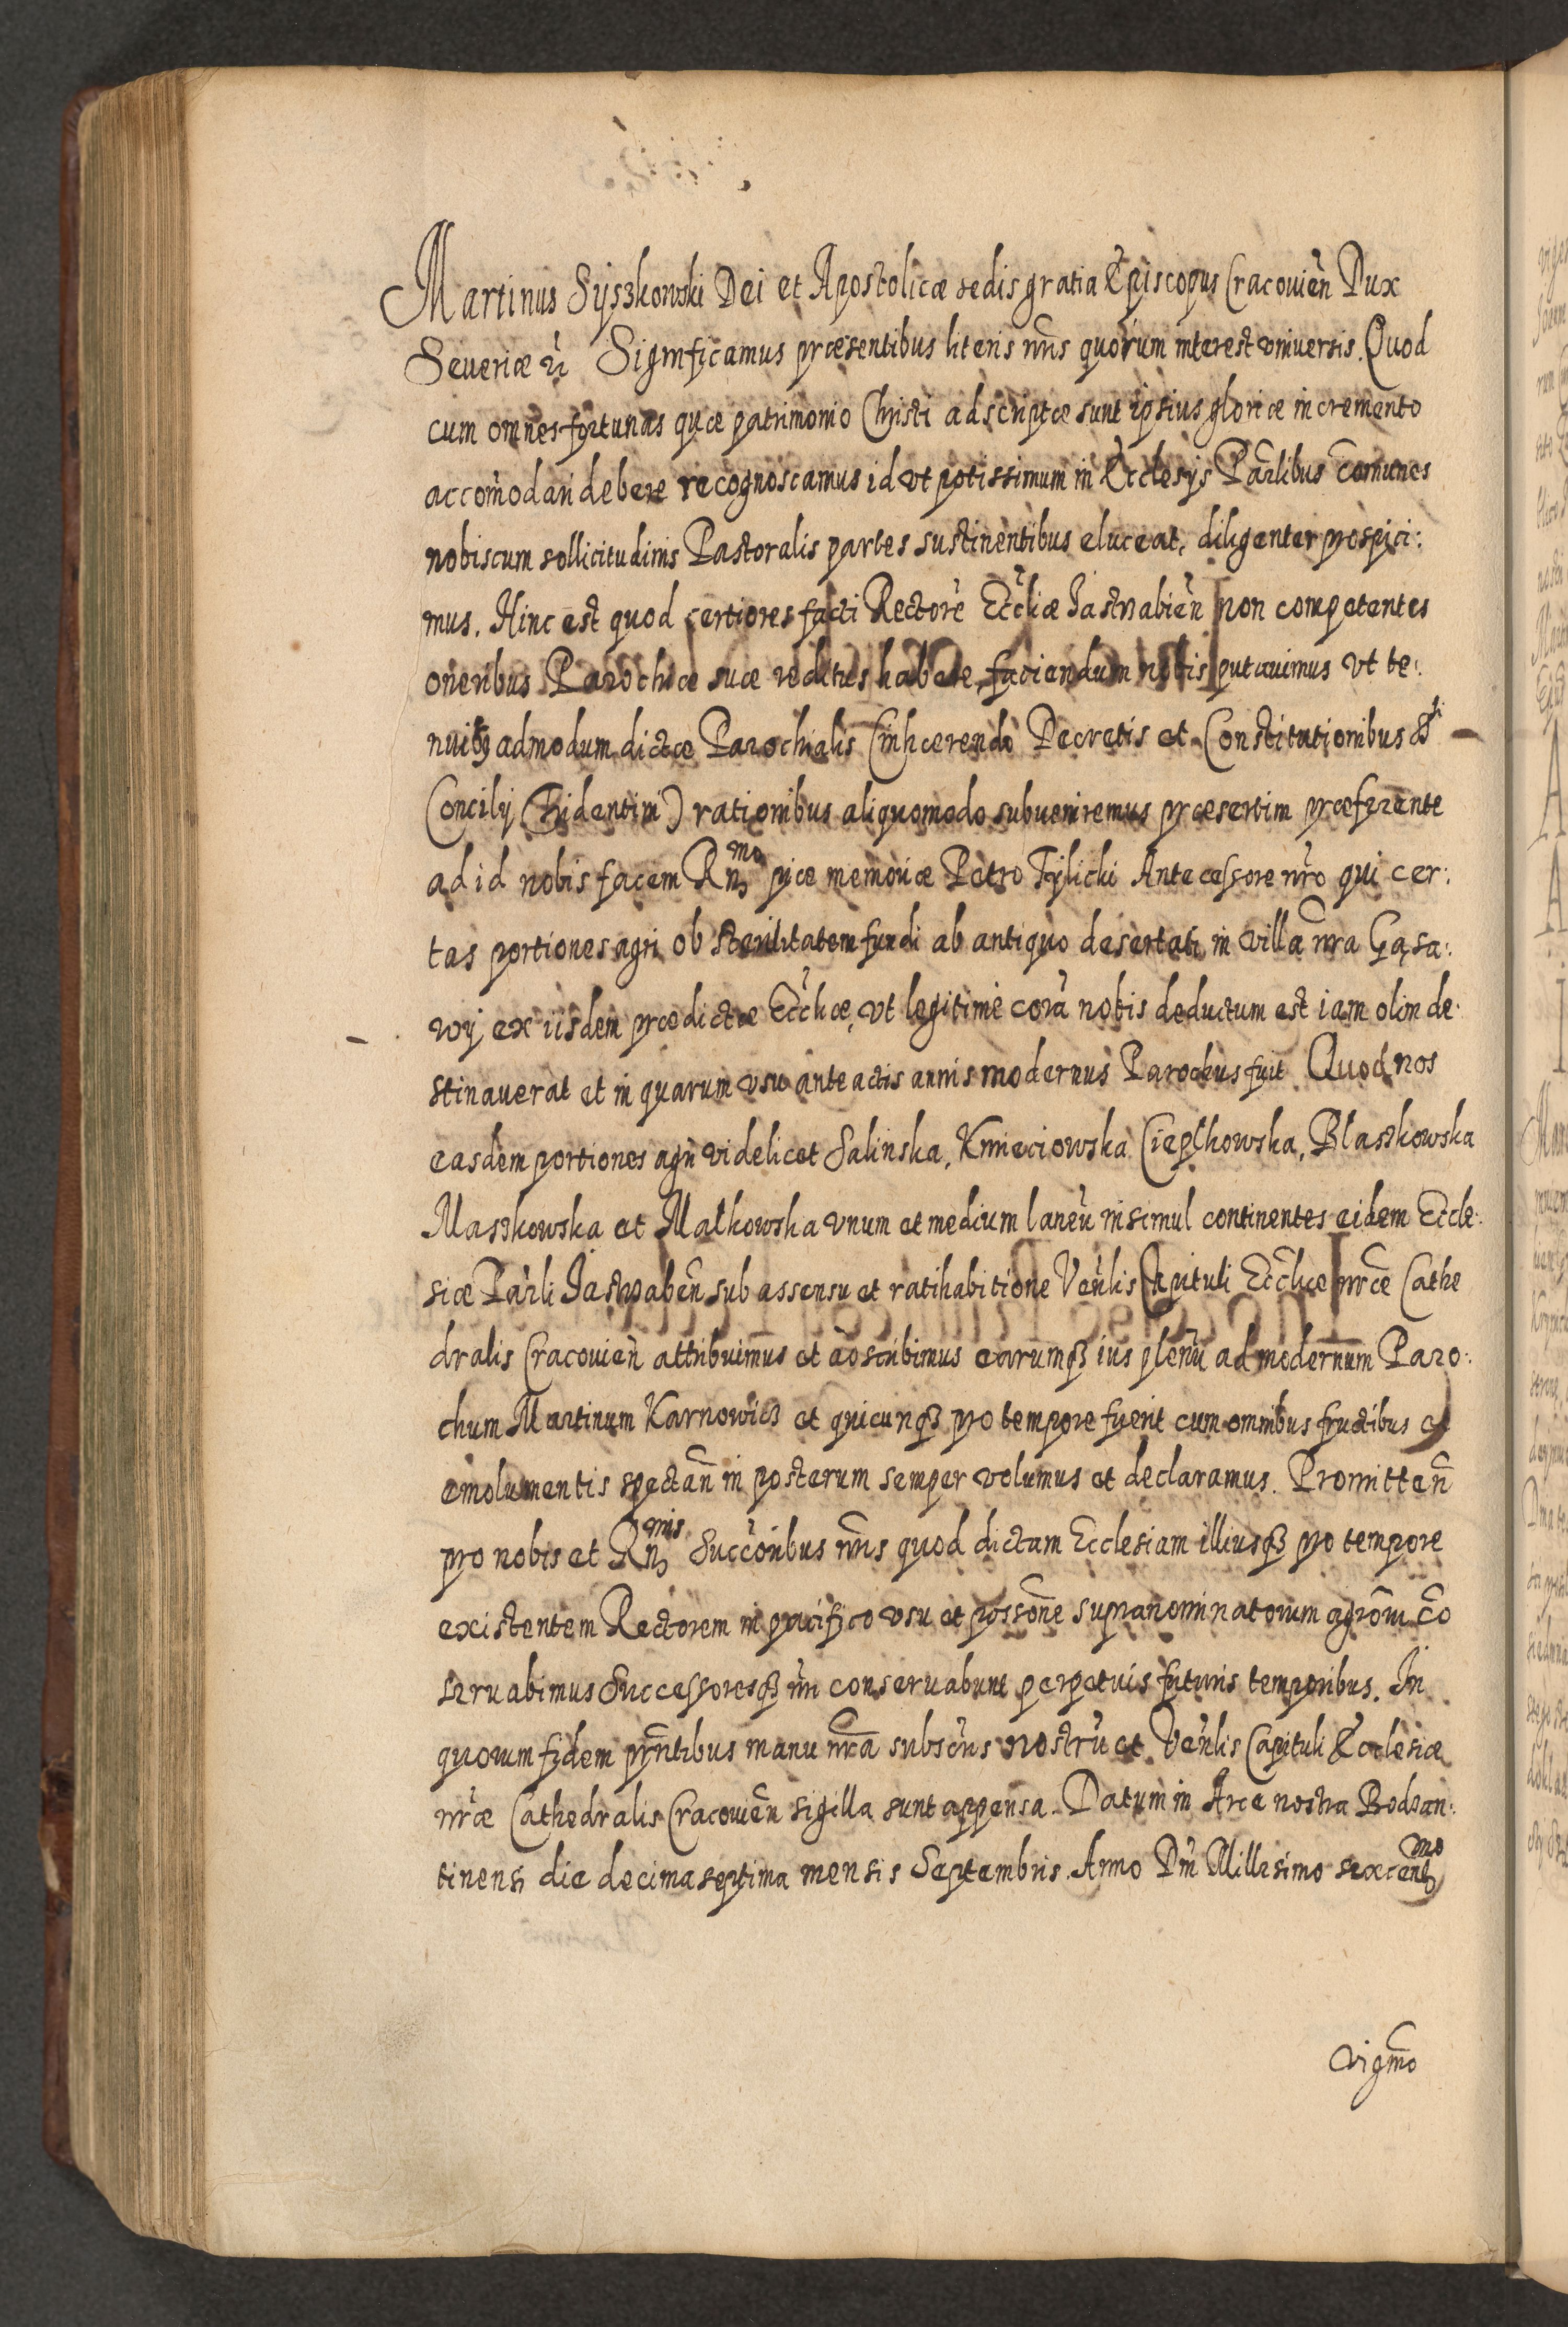 Martinus Syszkowski Dei et Apostolicæ sedis gratia Episcopus Cracouień Dux
Seueriæ Significamus præsentibus literis nr̃is quorum interest vniuersis. Quod
cum omnes fortunas quæ patrimonio Christi adscriptæ sunt ipsius gloriæ incremento
accom̃odari debere recognoscamus id vt potissimum in Ecclesijs Par̃libus com̃unes
nobiscum sollicitudinis Pastoralis partes sustinentibus eluceat, diligenter prospici:
mus. Hinc est quod certiores facti Rectorẽ Eccl̃iæ Jastrabień non competentes
oneribus Parochiæ suæ reditus habere, faciendum nobis putauimus vt te:
nuibꝫ admodum dictæ Parochialis (inhærendo Decretis et Constitutionibus
Concilij Tridentini) rationibus aliquomodo subueniremus præsertim præferente
ad id nobis facem Rn̄ᵐᵒ piæ memoriæ Petro Tylicki Antecessore nr̃o qui cer:
tas portiones agri ob sterilitatem fundi ab antiquo desertati in villa nr̃a Gąsa:
wy ex iisdem prædictæ Eccl̃iæ, vt legitime corã nobis deductum est iam olim de:
stinauerat et in quarum vsu anteactis annis modernus Parochus fuit Quod nos
easdem portiones agri videlicet Salinska, Kmieciowska Ciepłkowska, Błaszkowska
Maszkowska et Małkowska vnum et medium laneũ insimul continentes eidem Eccle:
siæ Par̃li Jastrabeñ sub assensu et ratihabitione Veñlis Capituli Eccl̃iæ nr̃æ Cathe
dralis Cracouień attribuimus et adscribimus earumqꝫ ius plenũ ad modernum Paro:
chum Martinum Karnowicz et quicunqꝫ pro tempore fuerit cum omnibus fructibus et
emolumentis spectañ in posterum semper volumus et declaramus. Promitteñ
pro nobis et Rn̄ᵐⁱˢ Succõribus nr̃is quod dictam Ecclesiam illiusqꝫ pro tempore
existentem Rectorem in pacifico vsu et possõne supranominatorum agrõrũ cõ
seruabimus Successoresqꝫ nr̃i conseruabunt perpetuis futuris temporibus. In
quorum fidem pr̃ntibus manu nr̃a subscr̃is nostrũ et Veñlis Capituli Ecclesiæ
nr̃æ Cathedralis Cracouień sigilla sunt appensa. Datum in Arce nostra Bodzan:
tinensi die decima septima mensis Septembris. Anno Dñi Millesimo sexcentᵐᵒ
vigm̃o